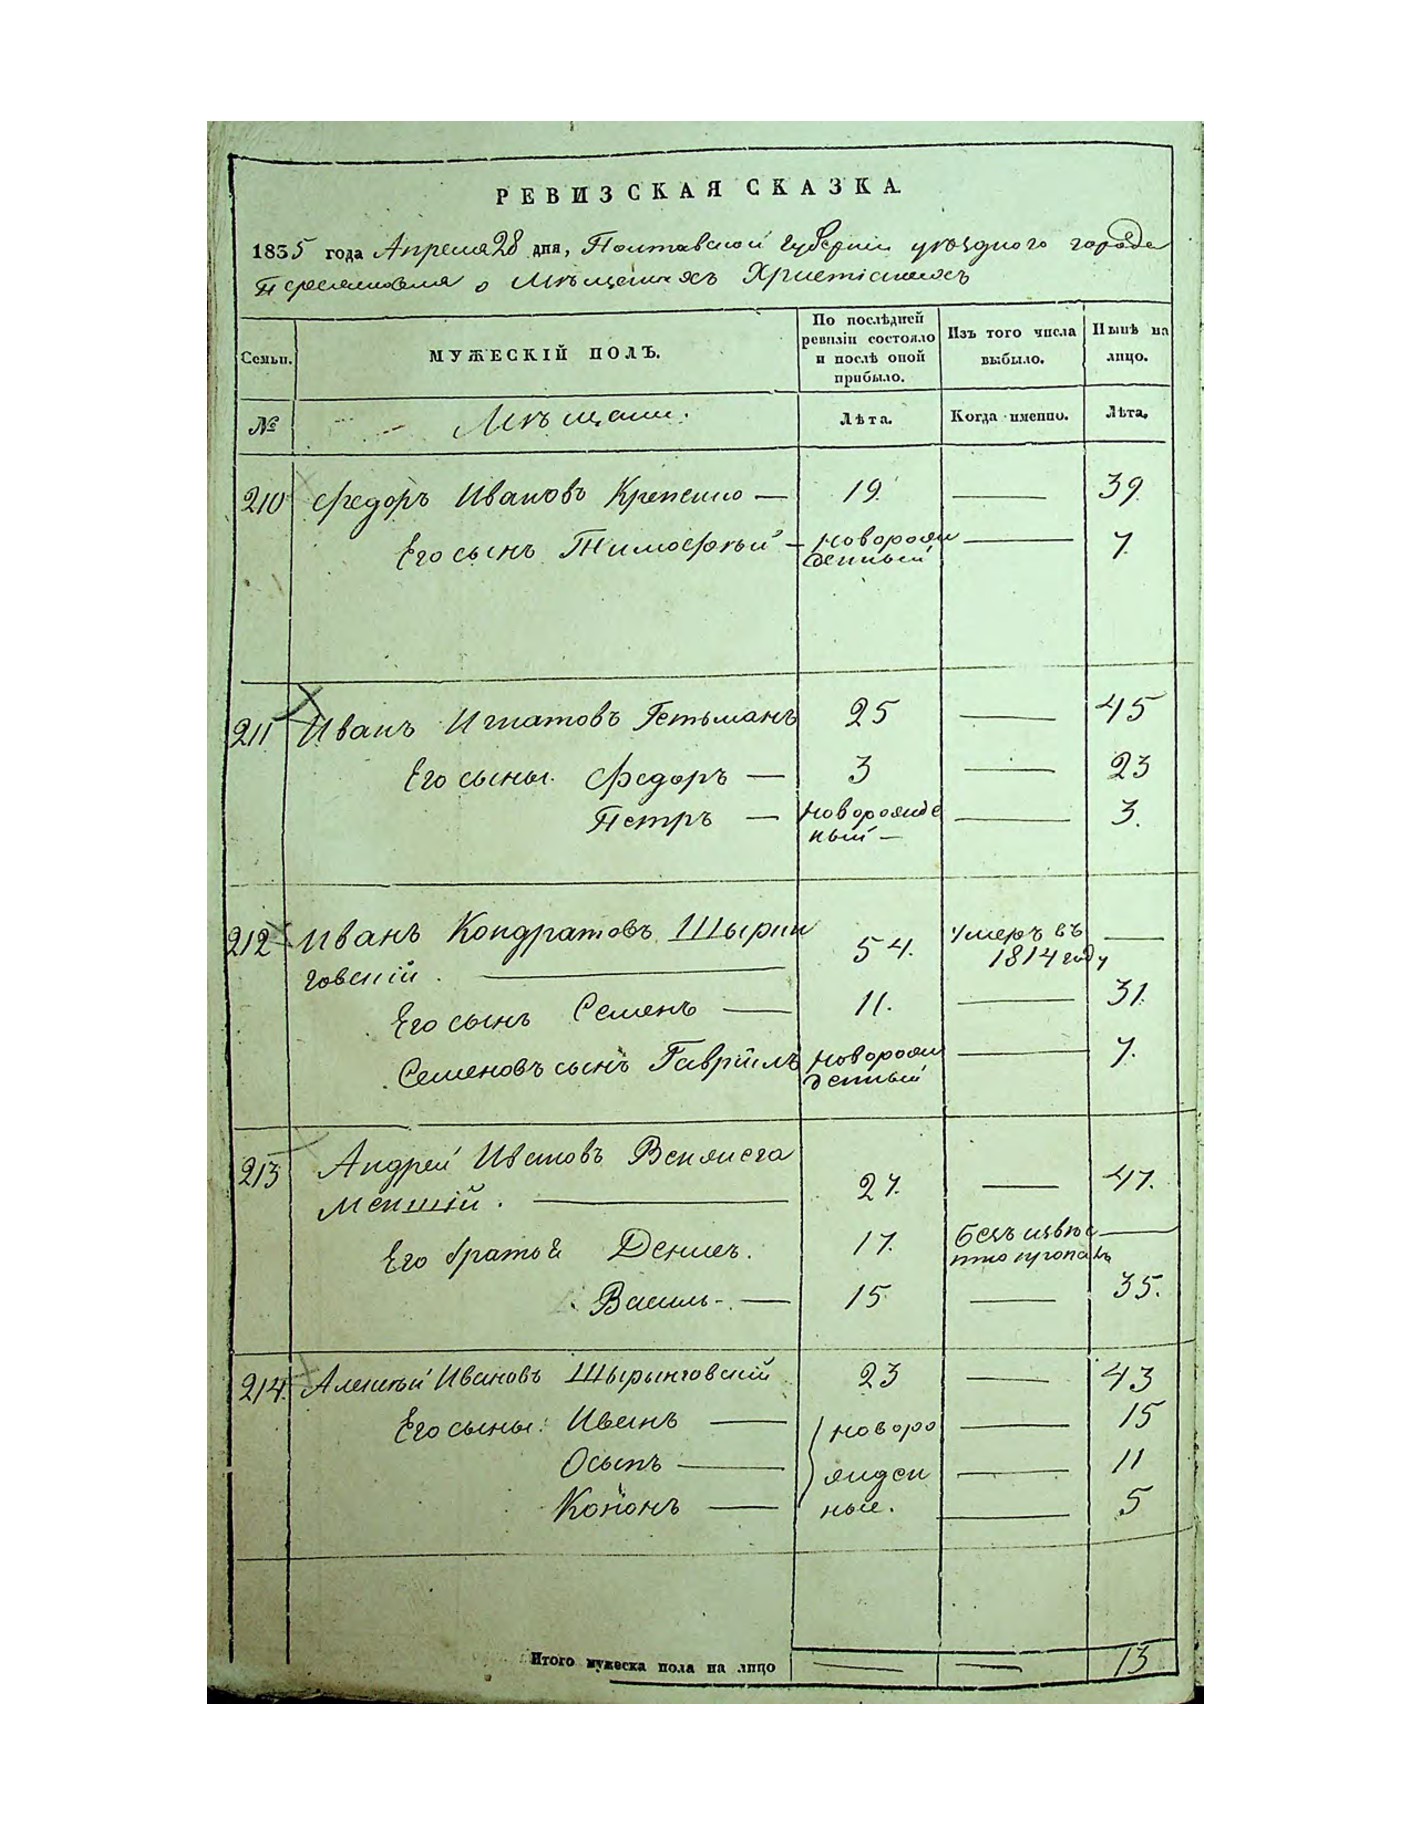 РЕВИЗСКАЯ СКАЗКА.
1835 года Апреля 28 дня, Полтавской Губернии уѣзднаго города
Переяславля о Мѣщанахъ Христіанахъ
Семьи. МУЖЕСКІЙ ПОЛЪ. По послѣдней ревизіи состояло и послѣ оной прибыло. Изъ того числа выбыло. Нынѣ на лицо.
№ Мѣщани. Лѣта. Когда именно. Лѣта.
210 Федоръ Ивановъ 19. — 39.
Его сынъ Тимофѣй — новорож
денный — 7.
211 Иванъ Игнатовъ Гетьманъ 25 — 45
Его сыны. Федоръ — 3 — 23
Петръ — новорожде
ный — — 3.
212 Иванъ Кондратовъ Шырин
говскій. — 54. Умеръ въ 1814 году —
Его сынъ Семенъ — 11. — 31.
Семеновъ сынъ Гавріилъ новорож
денный — 7.
213 Андрей Ивановъ
Меншій. — 27. — 47.
Его братья Денисъ. 17. безъ извѣс
тно пропалъ —
Василь — 15 — 35.
214. Алексѣй Ивановъ Шырынговскій 23 — 43
Его сыны: Иванъ — новоро — 15
Осыпъ — жден — 11
Кононъ — ные. — 5
Итого мужеска пола на лицо — — 13